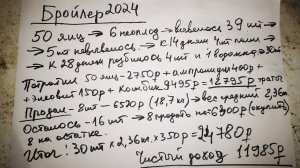 Бройлер 2024
50 яиц → 6 неоплод → вывелось 39 шт →
→ 5 шт невывелось → К 14 дням 4 шт пали →
→ К 28 дням разбилось 4 шт и 1 ворона
Потратил 50 яиц - 2750р + ампролиум 400р +
+ 150р + комбик 9495р = 12795р
Продал - 8 шт - 6520р (18,7 кг) → вес средний 2,36кг
Осталось - 16 шт → 8 продано по 6300р
8 на остатке.
Итог: 30 шт x 2,36 x 350р = 24780р
Чистый доход 11985р